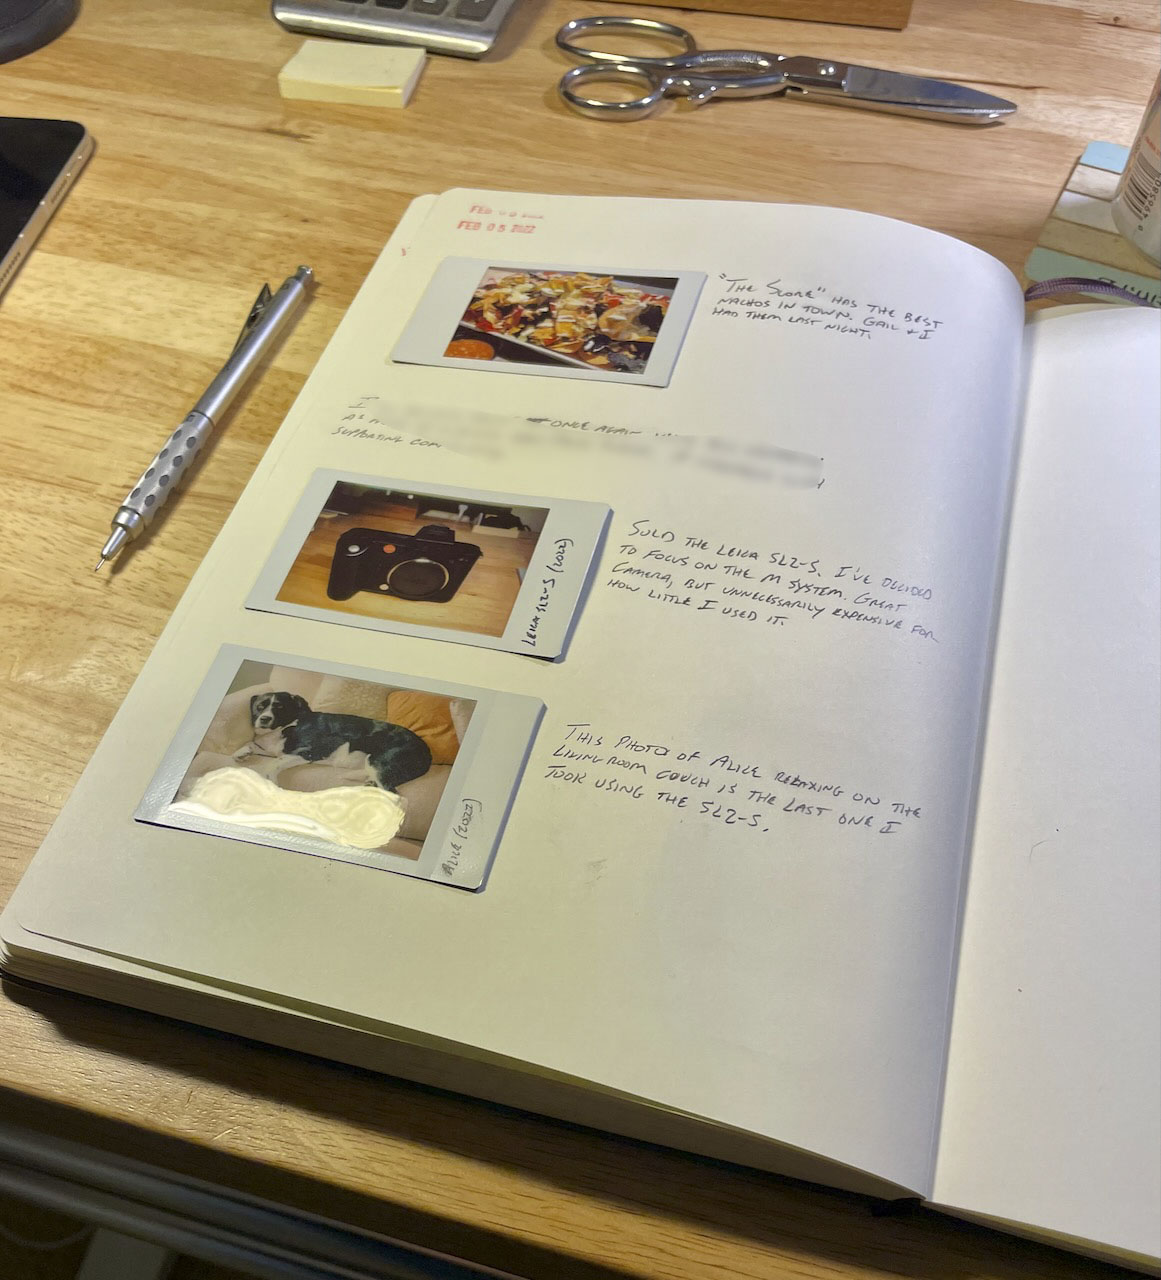 FEB
FEB 05 2022
"THE SCORE" HAS THE BEST
NACHOS IN TOWN. GAIL + I
HAD THEM LAST NIGHT.
I
ONCE AGAIN
SUPPORTING
SOLD THE LEICA SL2-S. I'VE DECIDED
TO FOCUS ON THE M SYSTEM. GREAT
CAMERA, BUT UNNECESSARILY EXPENSIVE FOR
HOW LITTLE I USED IT.
LEICA SL2-S (2022)
THIS PHOTO OF ALICE RELAXING ON THE
LIVING ROOM COUCH IS THE LAST ONE I
TOOK USING THE SL2-S.
ALICE (2022)